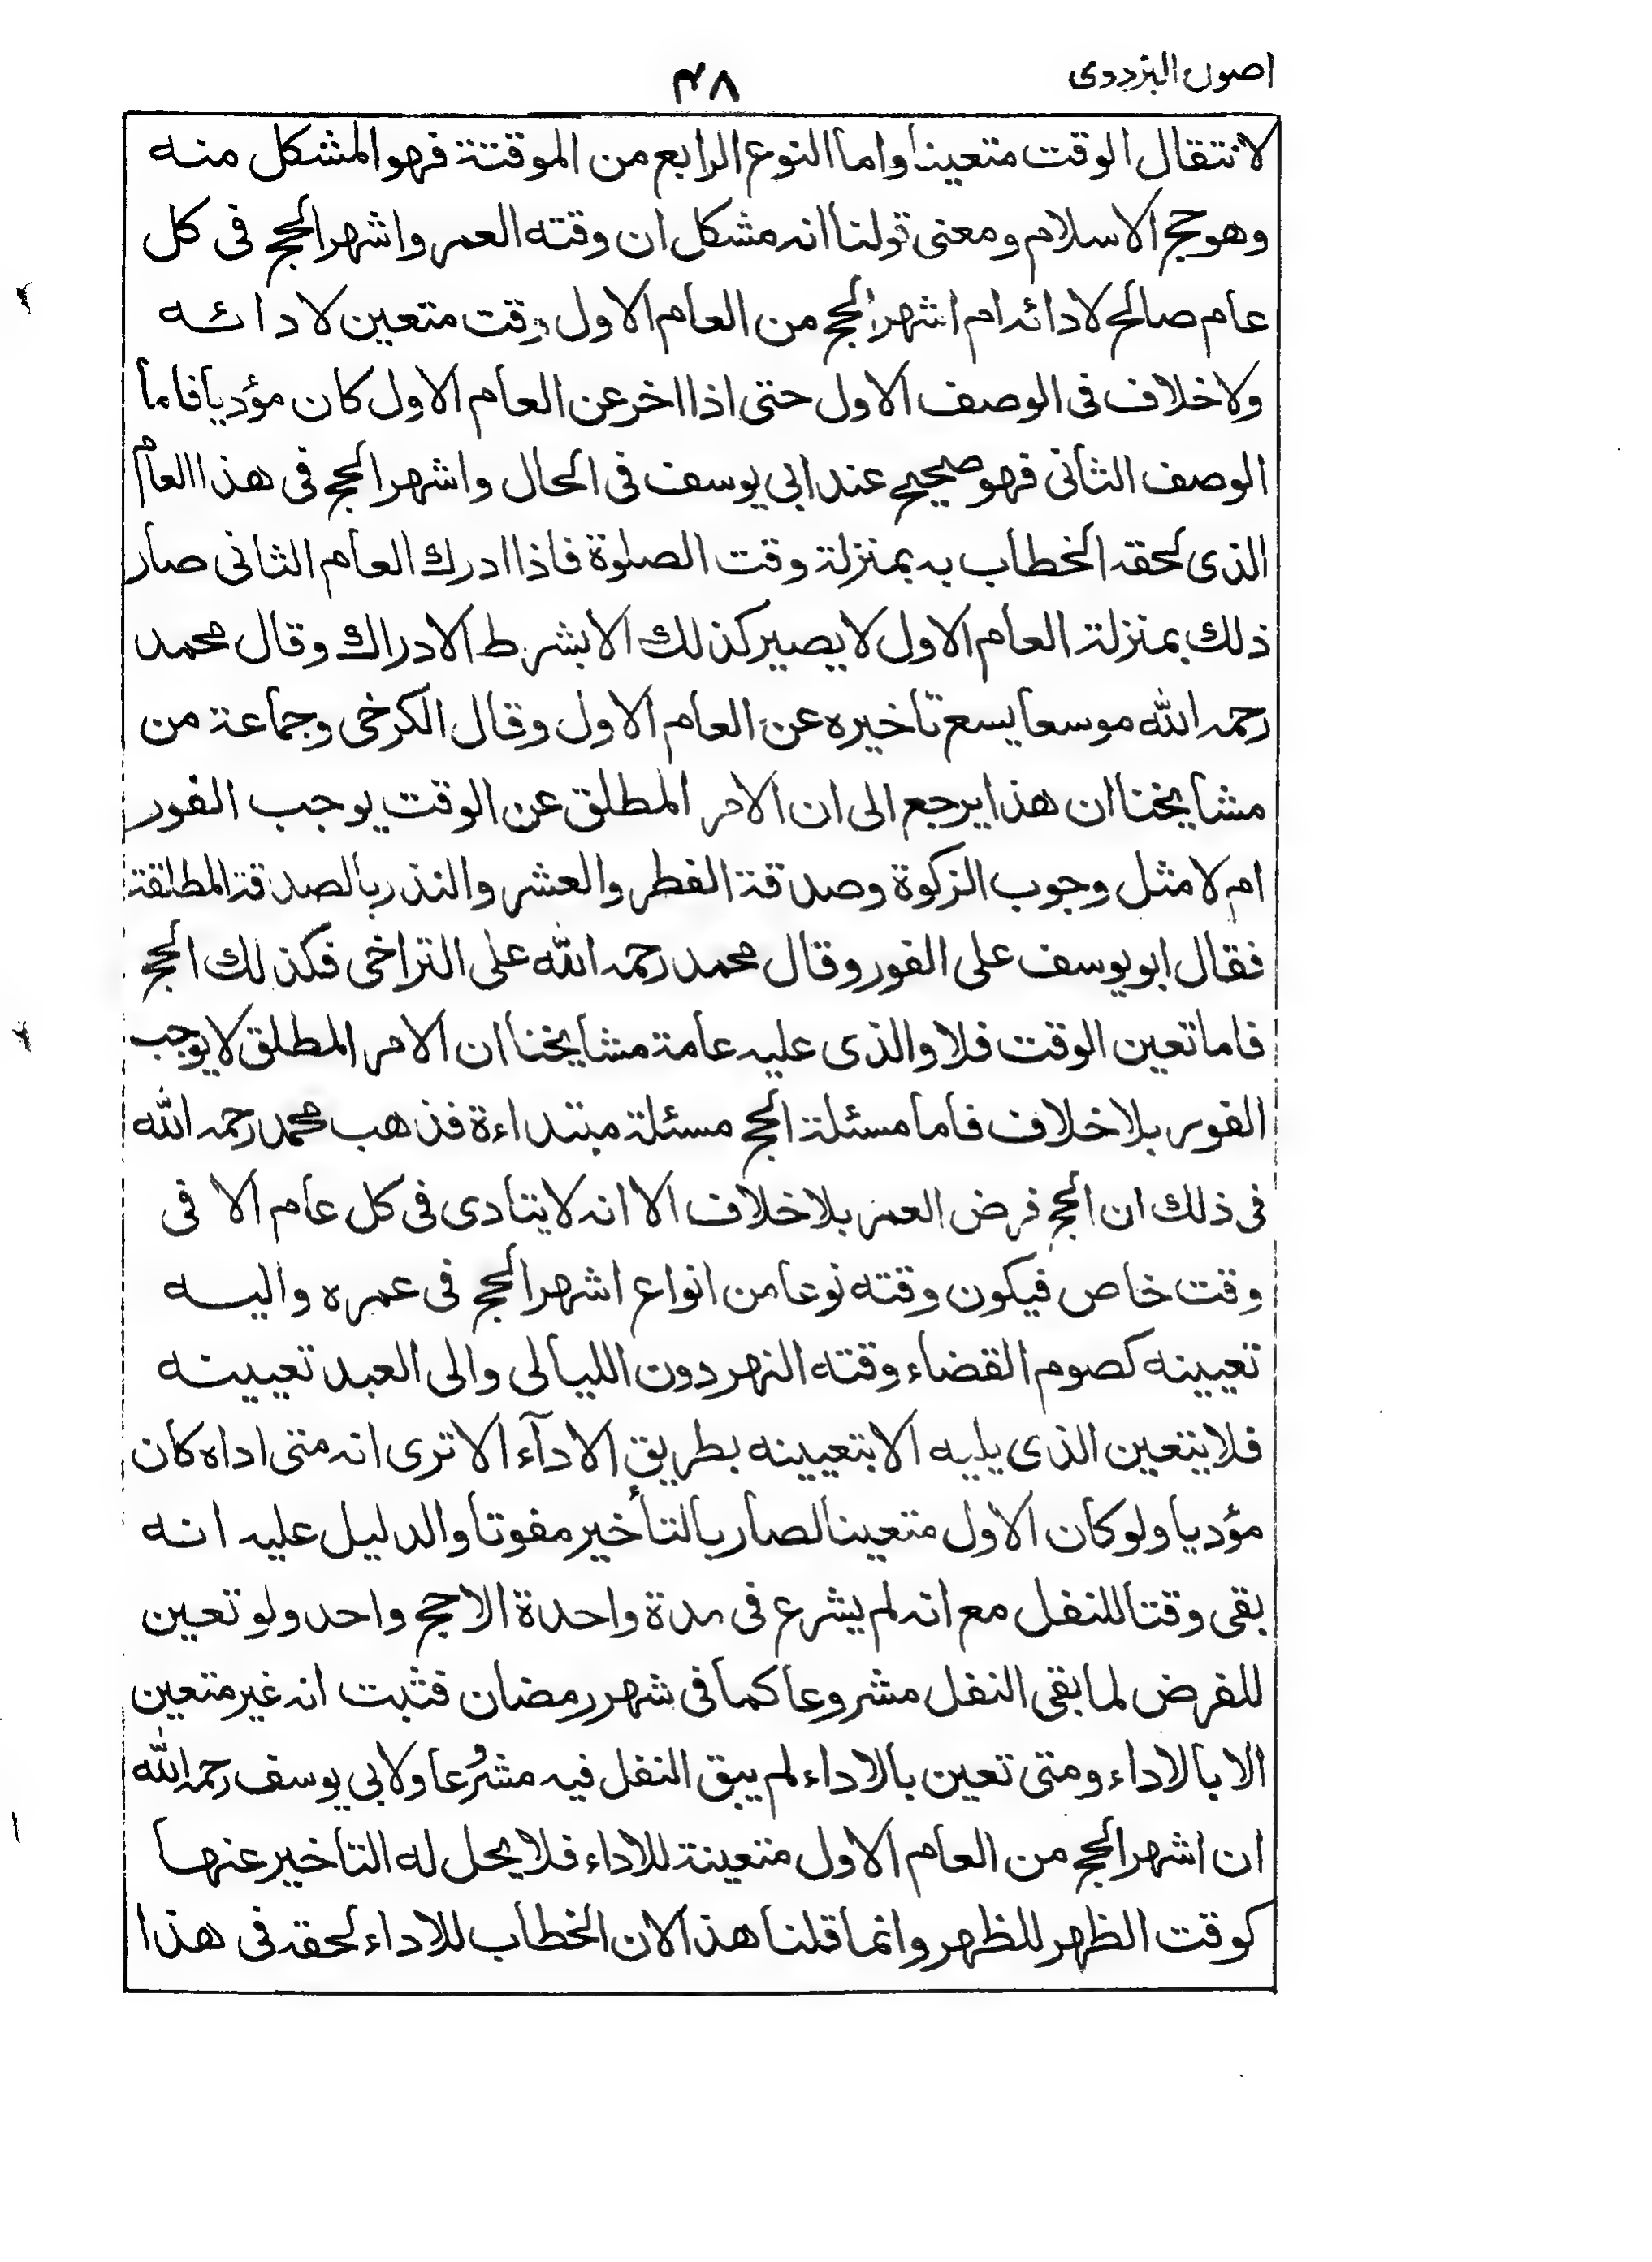 اصول البزدوى
٤٨
لانتقال الوقت متعينا واما النوع الرابع من الموقتة فهو المشكل منه
وهو حج الاسلام ومعنى قولنا انه مشكل ان وقته العمر واشهر الحج فى كل
عام صالح لادائه ام اشهر الحج من العام الاول وقت متعين لادائه
ولا خلاف فى الوصف الاول حتى اذا اخر عن العام الاول كان مؤديا فاما
الوصف الثانى فهو صحيح عند ابى يوسف فى الحال واشهر الحج فى هذا العام
الذى لحقه الخطاب به بمنزلة وقت الصلوة فاذا ادرك العام الثانى صار
ذلك بمنزلة العام الاول لا يصير كذلك الا بشرط الادراك وقال محمد
رحمه الله موسعا يسع تاخيره عن العام الاول وقال الكرخى وجماعة من
مشايخنا ان هذا يرجع الى ان الامر المطلق عن الوقت يوجب الفور
ام لا مثل وجوب الزكوة وصدقة الفطر والعشر والنذر بالصدقة المطلقة
فقال ابو يوسف على الفور وقال محمد رحمه الله على التراخى فكذلك الحج
فاما تعين الوقت فلا والذى عليه عامة مشايخنا ان الامر المطلق لا يوجب
الفور بلا خلاف فاما مسئلة الحج مسئلة مبتداءة فذهب محمد رحمه الله
فى ذلك ان الحج فرض العمر بلا خلاف الا انه لا يتادى فى كل عام الا فى
وقت خاص فيكون وقته نوعا من انواع اشهر الحج فى عمره واليه
تعيينه كصوم القضاء وقته النهر دون الليالى والى العبد تعيينه
فلا يتعين الذى يليه الا بتعيينه بطريق الادآء الا ترى انه متى اداه كان
مؤديا ولو كان الاول متعينا لصار بالتأخير مفوتا والدليل عليه انه
بقى وقتا للنفل مع انه لم يشرع فى مدة واحدة الا حج واحد ولو تعين
للفرض لما بقى النفل مشروعا كما فى شهر رمضان فثبت انه غير متعين
الا بالاداء ومتى تعين بالاداء لم يبق النفل فيه مشرُعا ولابى يوسف رحمه الله
ان اشهر الحج من العام الاول متعينة للاداء فلا يحل له التاخير عنها
كوقت الظهر للظهر وانما قلنا هذا لان الخطاب للاداء لحقه فى هذا